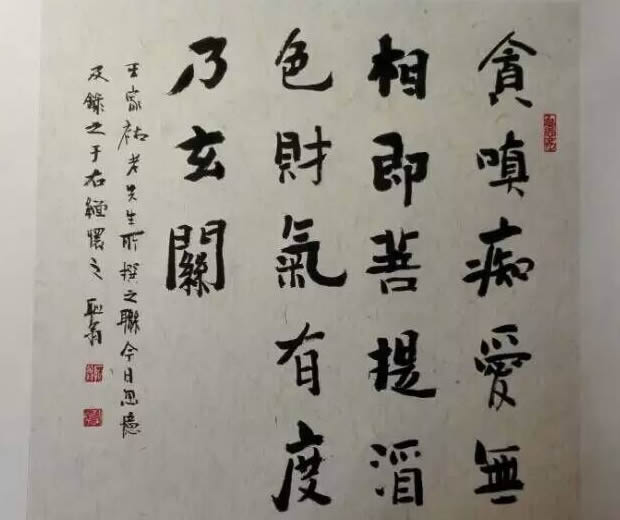 貪嗔痴愛無
相即菩提酒
色財氣有度
乃玄關
王家祐老先生所撰之聯今日忽憶
及錄之于右緬懷之